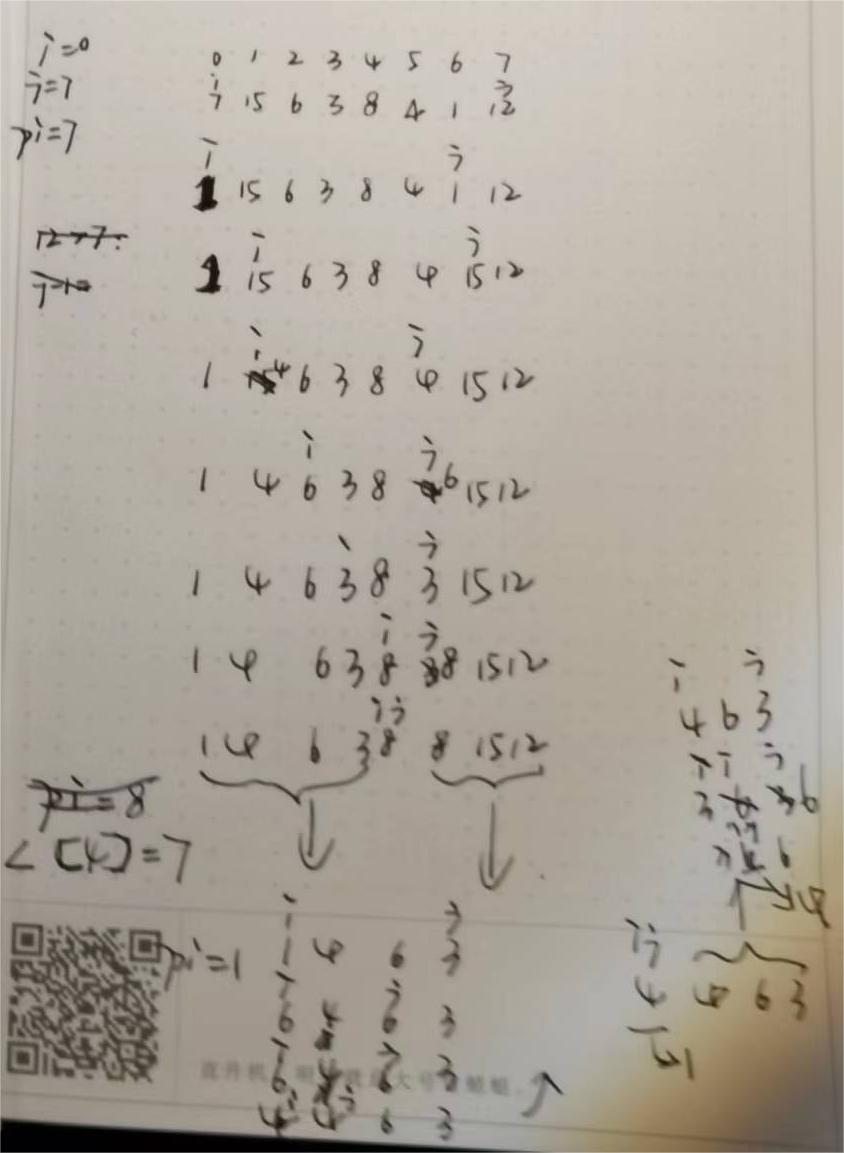 i=0
j=7
pi=7
0 1 2 3 4 5 6 7
i j
7 15 6 3 8 4 1 12
i j
1 15 6 3 8 4 1 12
12>7
i j
1 15 6 3 8 4 15 12
i j
1 4 6 3 8 4 15 12
i j
1 4 6 3 8 6 15 12
i j
1 4 6 3 8 3 15 12
i j
1 4 6 3 8 8 15 12
i j
1 4 6 3 8 8 15 12
pi=8
L[4]=7
i j
pi=1 1 4 6 3
i j
6 4 6 3
6 6 3
4 4 6 3
i j
4 6 3
i j
3 6
6
4
i j
4 4 6 3
直升机
大号